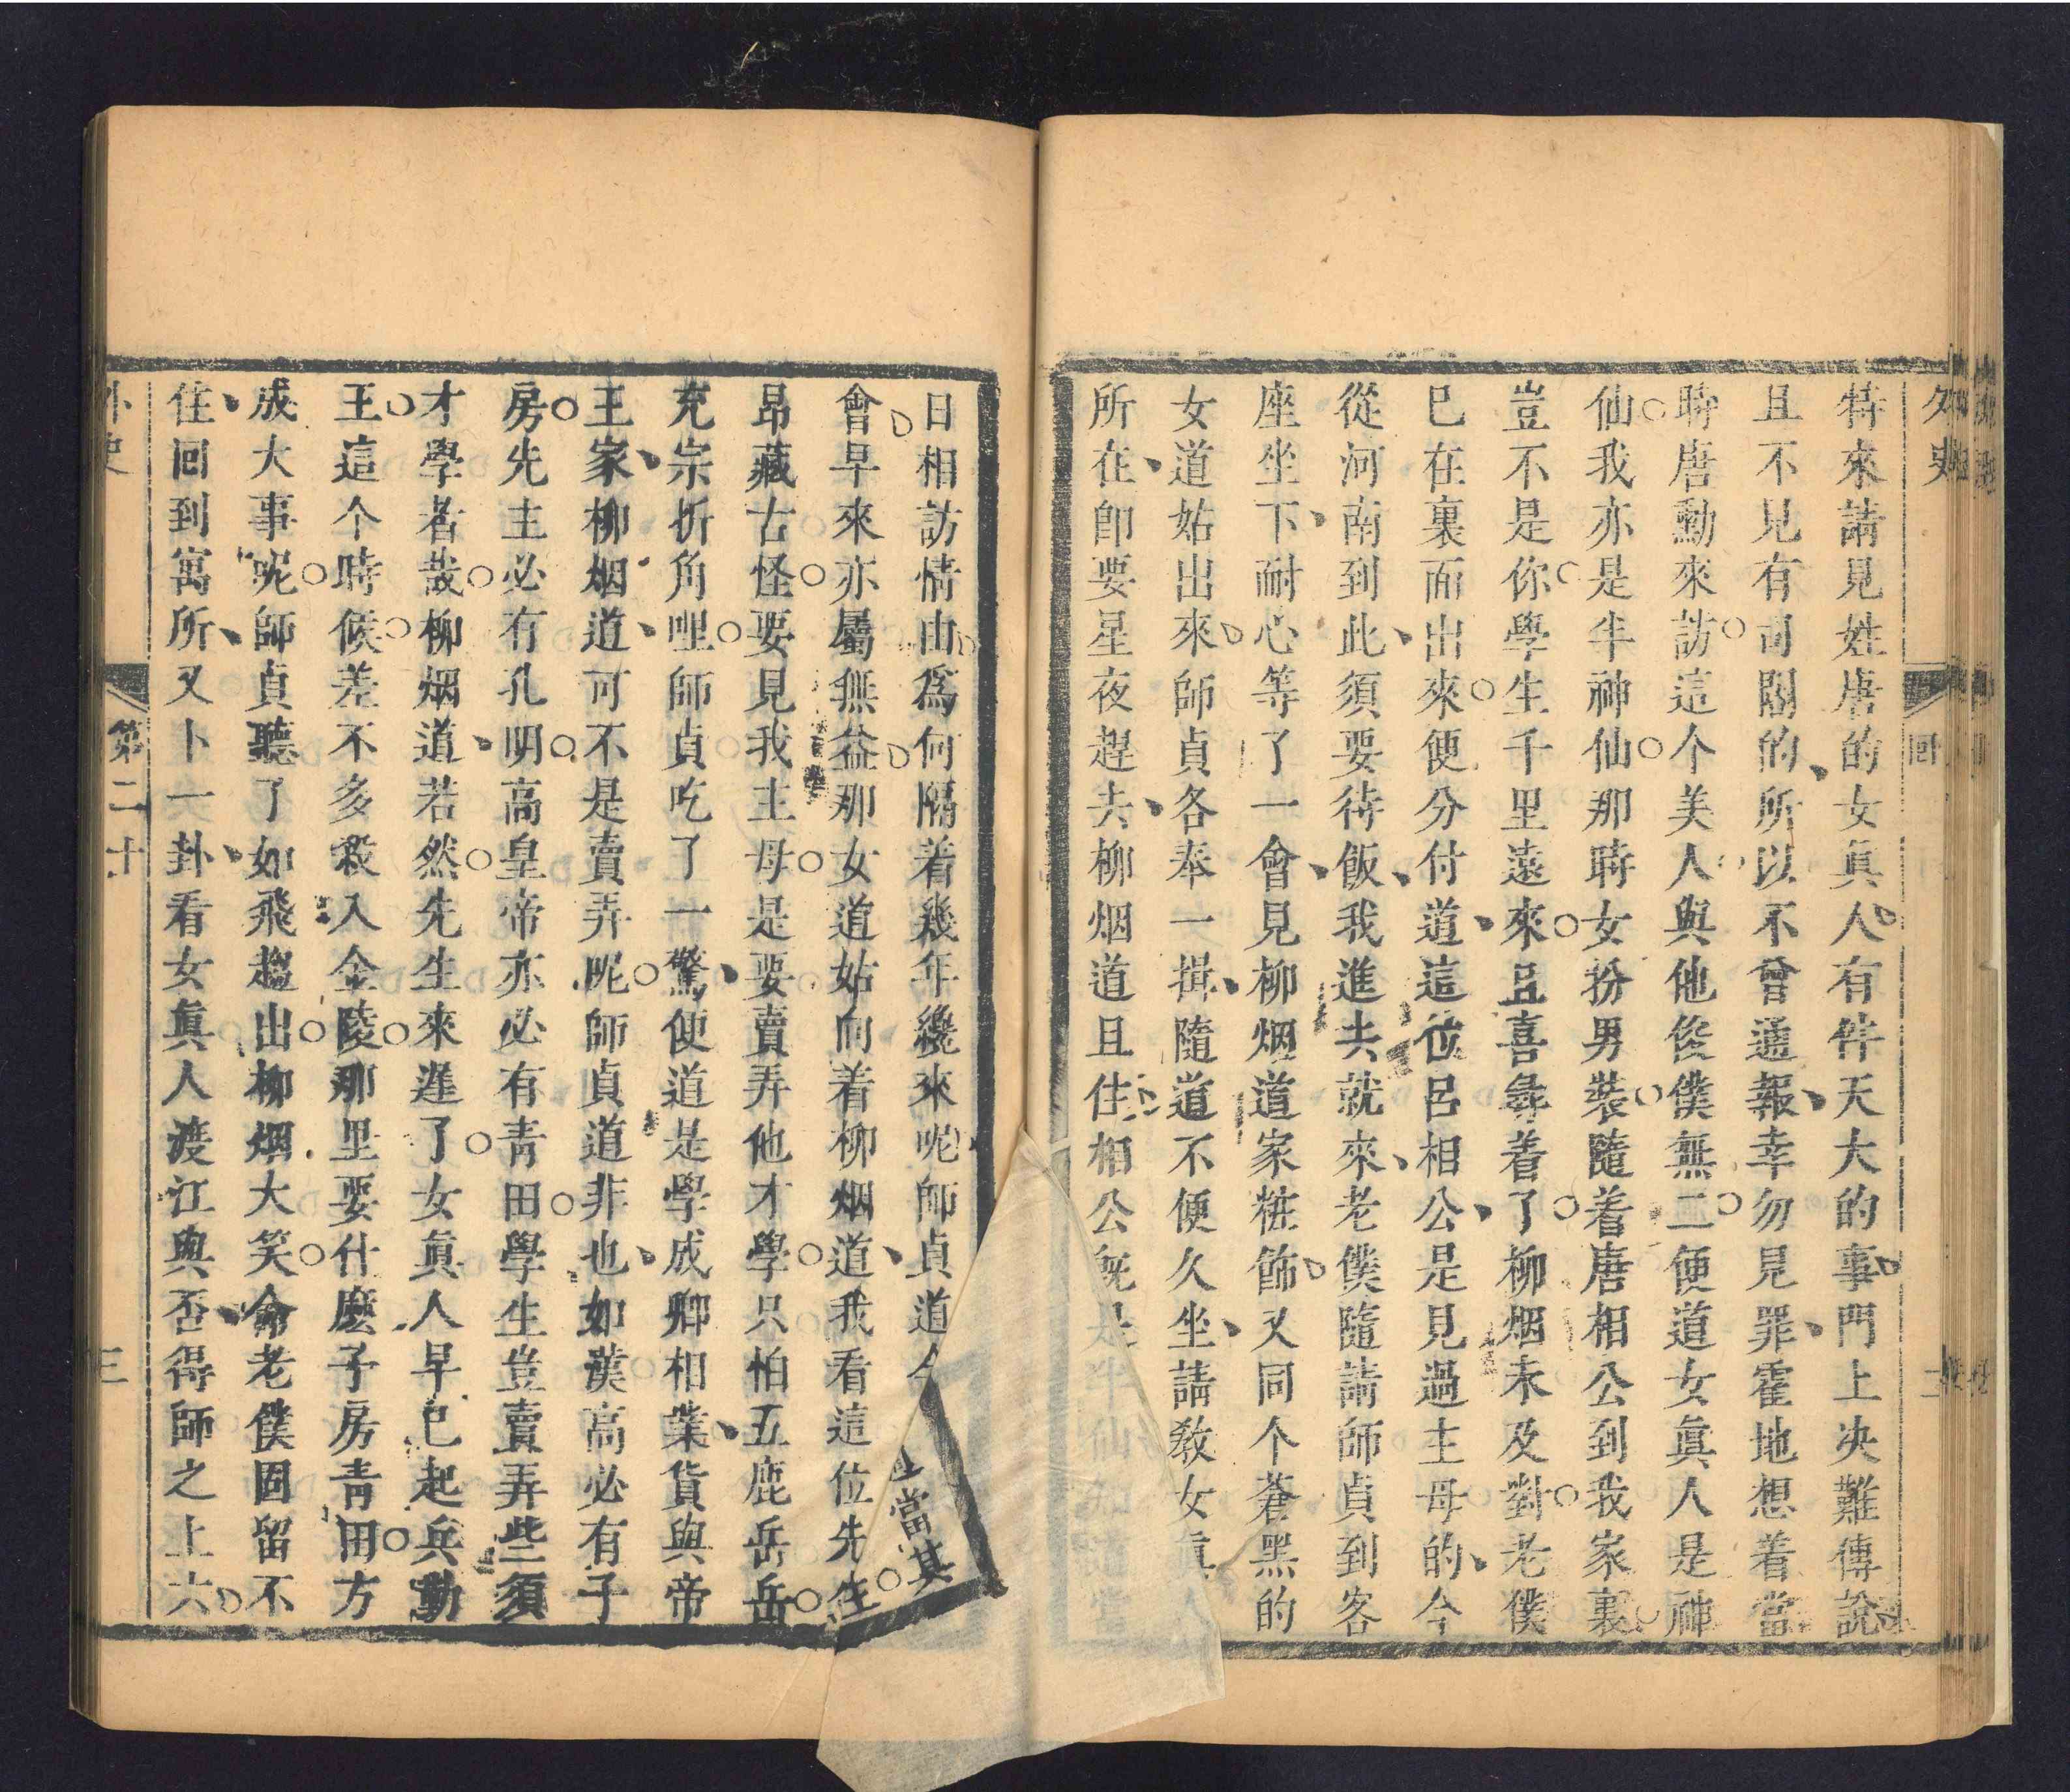 外史
回
二
特來請見姓唐的女眞人有件天大的事門上决難傳說
且不見有司閽的所以不曾通報幸勿見罪霍地想着當
時唐勳來訪這个美人與他俊僕無二便道女眞人是神
仙我亦是半神仙那時女扮男裝隨着唐相公到我家裏
豈不是你學生千里遠來且喜尋着了柳烟未及對老僕
已在裏面出來便分付道這位呂相公是見過主母的今
從河南到此須要待飯我進去就來老僕隨請師貞到客
座坐下耐心等了一會見柳烟道家粧飾又同个蒼黑的
女道姑出來師貞各奉一揖隨道不便久坐請敎女眞人
所在卽要星夜趕去柳烟道且住相公旣是半仙
日相訪情由爲何隔着幾年纔來呢師貞道
當其
會早來亦屬無益那女道姑向着柳烟道我看這位先生
昂藏古怪要見我主母是要賣弄他才學只怕五鹿岳岳
充宗折角哩師貞吃了一驚便道是學成卿相業貨與帝
王家柳烟道可不是賣弄呢師貞道非也如漢高必有子
房先主必有孔明高皇帝亦必有靑田學生豈賣弄些須
才學者哉柳烟道若然先生來遲了女眞人早已起兵勤
王這个時候差不多殺入金陵那里要什麼子房靑田方
成大事呢師貞聽了如飛趨出柳烟大笑命老僕固留不
住回到寓所又卜一卦看女眞人渡江與否得師之上六
外史
第二十
三